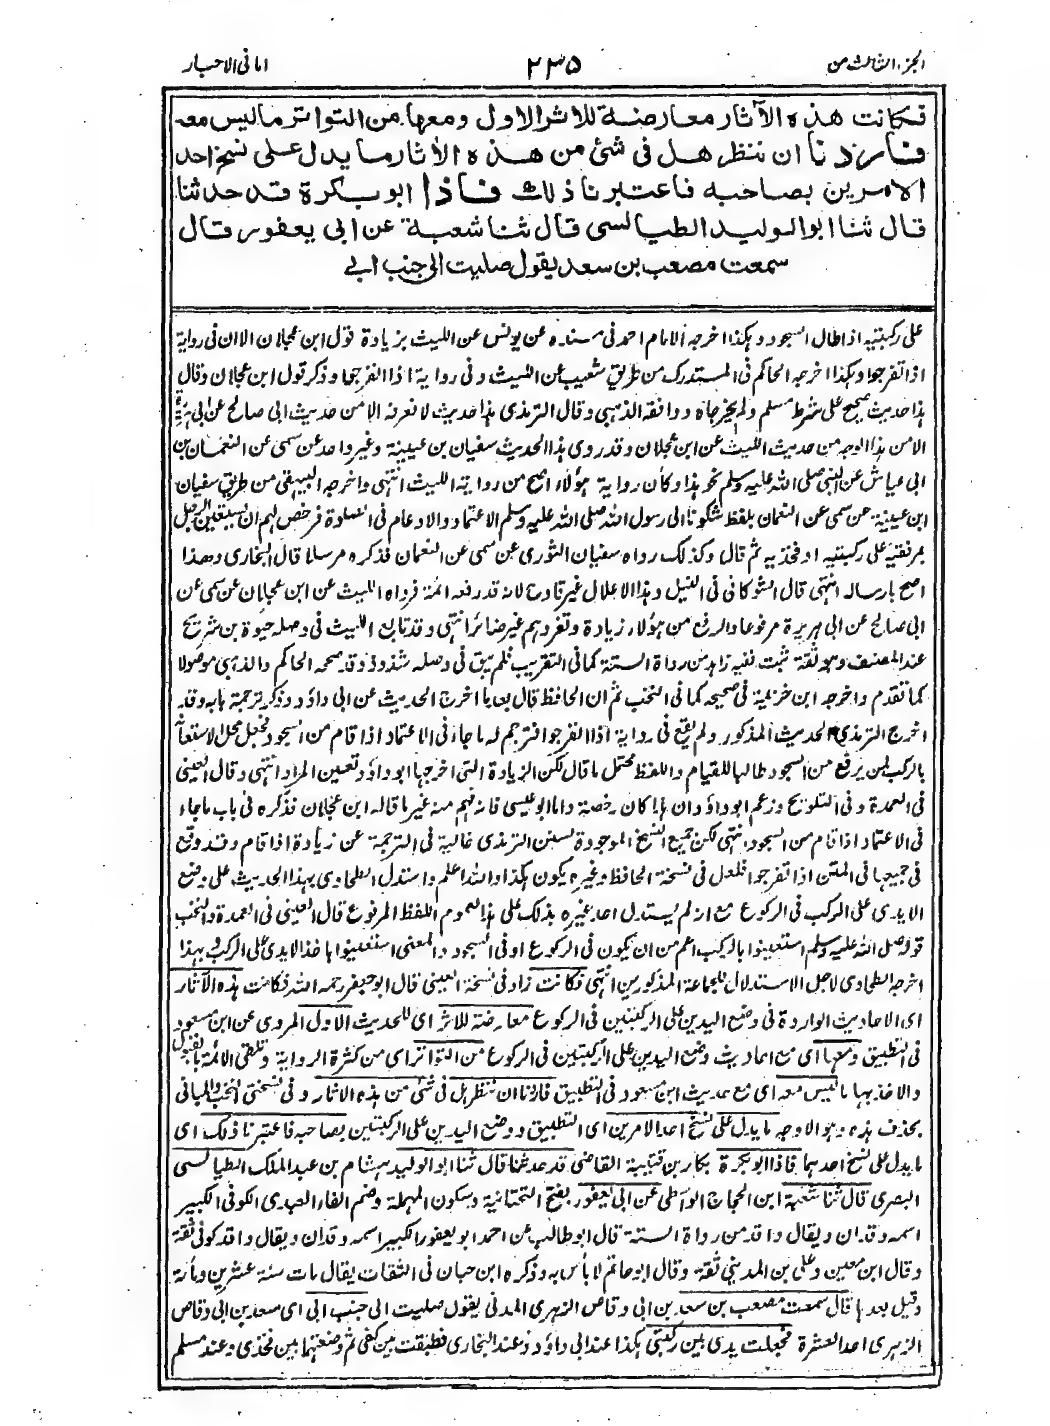 الجزء الثالث من
٢٣٥
امانى الاحبار
فكانت هذه الآثار معارضة للاثر الاول ومعها من التواتر ما ليس معه
فاردنا ان ننظر هل فى شئ من هذه الآثار ما يدل على نسخ احد
الامرين بصاحبه فاعتبرنا ذلك فاذا ابو بكرة قد حدثنا
قال ثنا ابو الوليد الطيالسى قال ثنا شعبة عن ابى يعفور قال
سمعت مصعب بن سعد يقول صليت الى جنب ابى
على ركبتيه اذا اطال السجود وهكذا اخرجه الامام احمد فى مسنده عن يونس عن الليث بزيادة قول ابن عجلان الا ان فى رواية
اذا تفرجوا وهكذا اخرجه الحاكم فى المستدرك من طريق شعيب عن الليث وفى رواية اذا انفرجوا وذكر قول ابن عجلان وقال
هذا حديث صحيح على شرط مسلم ولم يخرجاه ووافقه الذهبى وقال الترمذى هذا حديث لا نعرفه الا من حديث ابى صالح عن ابى هريرة
الا من هذا الوجه من حديث الليث عن ابن عجلان وقد روى هذا الحديث سفيان بن عيينة وغير واحد عن سمى عن النعمان بن
ابى عياش عن النبى صلى الله عليه وسلم نحو هذا وكان رواية هؤلاء اصح من رواية الليث انتهى واخرجه البيهقى من طريق سفيان
ابن عيينة عن سمى عن النعمان بلفظ شكونا الى رسول الله صلى الله عليه وسلم الاعتماد والادعام فى الصلوة فرخص لهم ان يستعين الرجل
بمرفقيه على ركبتيه او فخذيه ثم قال وكذلك رواه سفيان الثورى عن سمى عن النعمان فذكره مرسلا قال البخارى وهذا
اصح بارساله انتهى قال الشوكانى فى النيل وهذا الاعلال غير قادح لانه قد رفعه ائمة فرواه الليث عن ابن عجلان عن سمى عن
ابى صالح عن ابى هريرة مرفوعا والرفع من هؤلاء زيادة وتفردهم غير ضائر انتهى وقد تابع الليث فى وصله حيوة بن شريح
عند المصنف وهو ثقة ثبت فقيه زاهد من رواة الستة كما فى التقريب فلم يبق فى وصله شذوذ وقد صححه الحاكم والذهبى موصولا
كما تقدم واخرجه ابن خزيمة فى صحيحه كما فى النخب ثم ان الحافظ قال بعد ما اخرج الحديث عن ابى داؤد وذكر ترجمة بابه وقد
اخرج الترمذى الحديث المذكور ولم يقع فى رواية اذا انفرجوا فترجم له ما جاء فى الاعتماد اذا قام من السجود فجعل محل الاستعانة
بالركب لمن يرفع من السجود طالبا للقيام واللفظ محتمل ما قال لكن الزيادة التى اخرجها ابو داؤد تعين المراد انتهى وقال العينى
فى العمدة وفى التلويح وزعم ابو داؤد ان هذا كان رخصة واما ابو عيسى فانه فهم منه غير ما قاله ابن عجلان فذكره فى باب ما جاء
فى الاعتماد اذا قام من السجود انتهى لكن جميع النسخ الموجودة لسنن الترمذى خالية فى الترجمة عن زيادة اذا قام وقد وقع
فى جميعها فى المتن اذا تفرجوا فلعل فى نسخة الحافظ وغيره يكون هكذا والله اعلم واستدل الطحاوى بهذا الحديث على وضع
الايدى على الركب فى الركوع مع انه لم يستدل احد غيره بذلك على هذا لعموم اللفظ المرفوع قال العينى فى العمدة والنخب
قوله صلى الله عليه وسلم استعينوا بالركب اعم من ان يكون فى الركوع او فى السجود والمعنى استعينوا باخذ الايدى على الركب ولهذا
اخرجه الطحاوى لاجل الاستدلال للجماعة المذكورين انتهى فكانت زاد فى نسخة العينى قال ابو جعفر رحمه الله فكانت هذه الآثار
اى الاحاديث الواردة فى وضع اليدين على الركبتين فى الركوع معارضة للاثر اى للحديث الاول المروى عن ابن مسعود
فى التطبيق ومعها اى مع احاديث وضع اليدين على الركبتين فى الركوع من التواتر اى من كثرة الرواية وتلقى الائمة بالقبول
والاخذ بها ما ليس معه اى مع حديث ابن مسعود فى التطبيق فاردنا ان ننظر هل فى شئ من هذه الآثار وفى نسختى النخب والمبانى
بحذف هذه وهو الاوجه ما يدل على نسخ احد الامرين اى التطبيق ووضع اليدين على الركبتين بصاحبه فاعتبرنا ذلك اى
ما يدل على نسخ احدهما فاذا ابو بكرة بكار بن قتيبة القاضى قد حدثنا قال ثنا ابو الوليد هشام بن عبد الملك الطيالسى
البصرى قال ثنا شعبة ابن الحجاج الواسطى عن ابى يعفور بفتح التحتانية وسكون المهملة وضم الفاء العبدى الكوفى الكبير
اسمه وقدان ويقال واقد من رواة الستة قال ابو طالب عن احمد ابو يعفور الكبير اسمه وقدان ويقال واقد كوفى ثقة
وقال ابن معين وعلى بن المدينى ثقة وقال ابو حاتم لا بأس به وذكره ابن حبان فى الثقات يقال مات سنة عشرين ومأة
وقيل بعدها قال سمعت مصعب بن سعد بن ابى وقاص الزهرى المدنى يقول صليت الى جنب ابى اى سعد بن ابى وقاص
الزهرى احد العشرة فجعلت يدى بين ركبتى هكذا عند ابى داؤد وعند البخارى فطبقت بين كفى ثم وضعتهما بين فخذى وعند مسلم